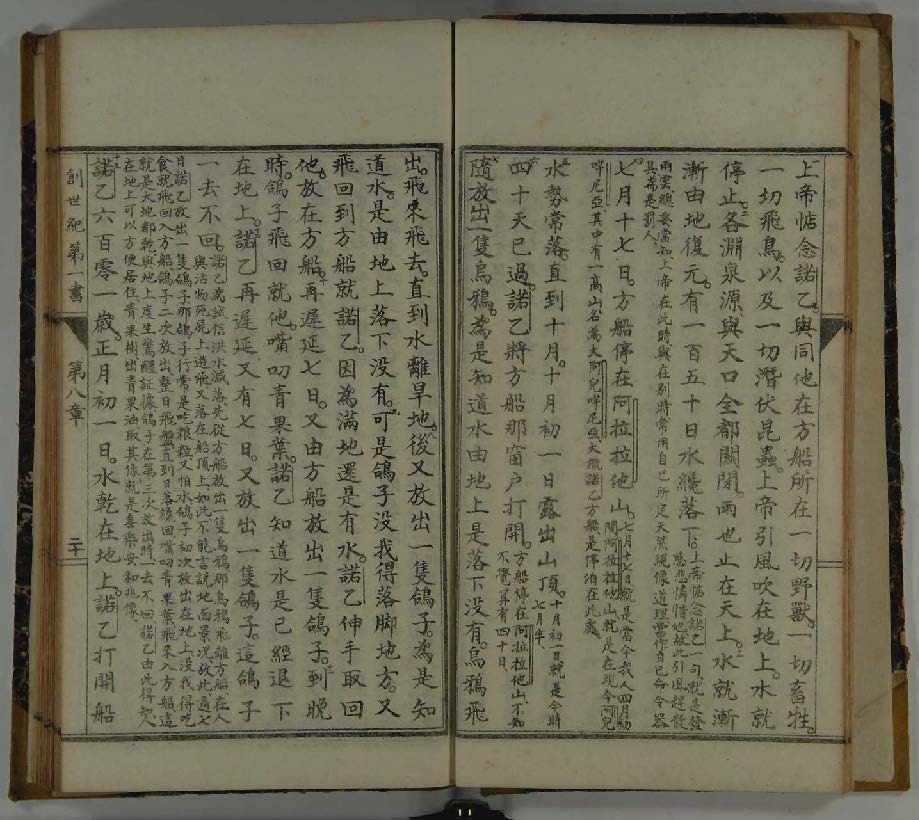 上帝惦念諾乙。與同他在方船所在一切野獸。一切畜牲。
一切飛鳥。以及一切潛伏昆蟲。上帝引風吹在地上。水就
停止。各淵泉源。與天口全都關閉。雨也止在天上。水就漸
漸由地復元。有一百五十日水纔落下。
上帝惦念諾乙一句就是發
慈悲憐惜他故此引風趕散
雨雲總要當知上帝在此時與在別時常用自己所定天然現像道理當作自己命令器
具為是罰人。
七月十七日。方船停在阿拉拉他山。
七月十七日就是當今我人四月初
間阿拉拉他山就是在現今阿兒
咩尼亞其中有一高山名為大阿兒咩尼亞大概諾乙方船是停泊在此處
水勢常落。直到十月。十月初一日露出山頂。
十月初一日就是今時
七月半、
四十天已過。諾乙將方船那窗户打開。
方船停在阿拉拉他山不知
不覺算有四十日、
隨放出一隻烏鴉。為是知道水由地上是落下沒有。烏鴉飛
出。飛來飛去。直到水離旱地。後又放出一隻鴿子。為是知
道水。是由地上落下沒有。可是鴿子沒找得落脚地方。又
飛回到方船就諾乙。因為滿地還是有水。諾乙伸手取回
他放在方船。再遲延七日。又由方船放出一隻鴿子。到晚
時。鴿子飛回就他。嘴叨青果葉。諾乙知道水是已經退下
在地上。諾乙再遲延又有七日。又放出一隻鴿子。這鴿子
一去不回。
諾乙為試信洪水減落先從方船放出一隻烏鴉那烏鴉飛離方船在人
與活物死屍上造飛又落在船頂上如此不能言說地面景況故此過七
日諾乙放出一隻鴿子那鴿子行常是吃糧粒又怕水鴿子初次放出在地上沒找得吃
食就飛回入方船鴿子二次放出整日飛盤直到日落纔回嘴叨青果葉飛來入方船這
就是大地都乾與地上產生驚醒証據鴿子在第三次放出時一去不回諾乙由此得知人
在地上可以方便居住青果樹出青果油取其像就是喜樂安和兆像、
諾乙六百零一歲。正月初一日。水乾在地上。諾乙打開船
創世紀第一書
第八章
二十